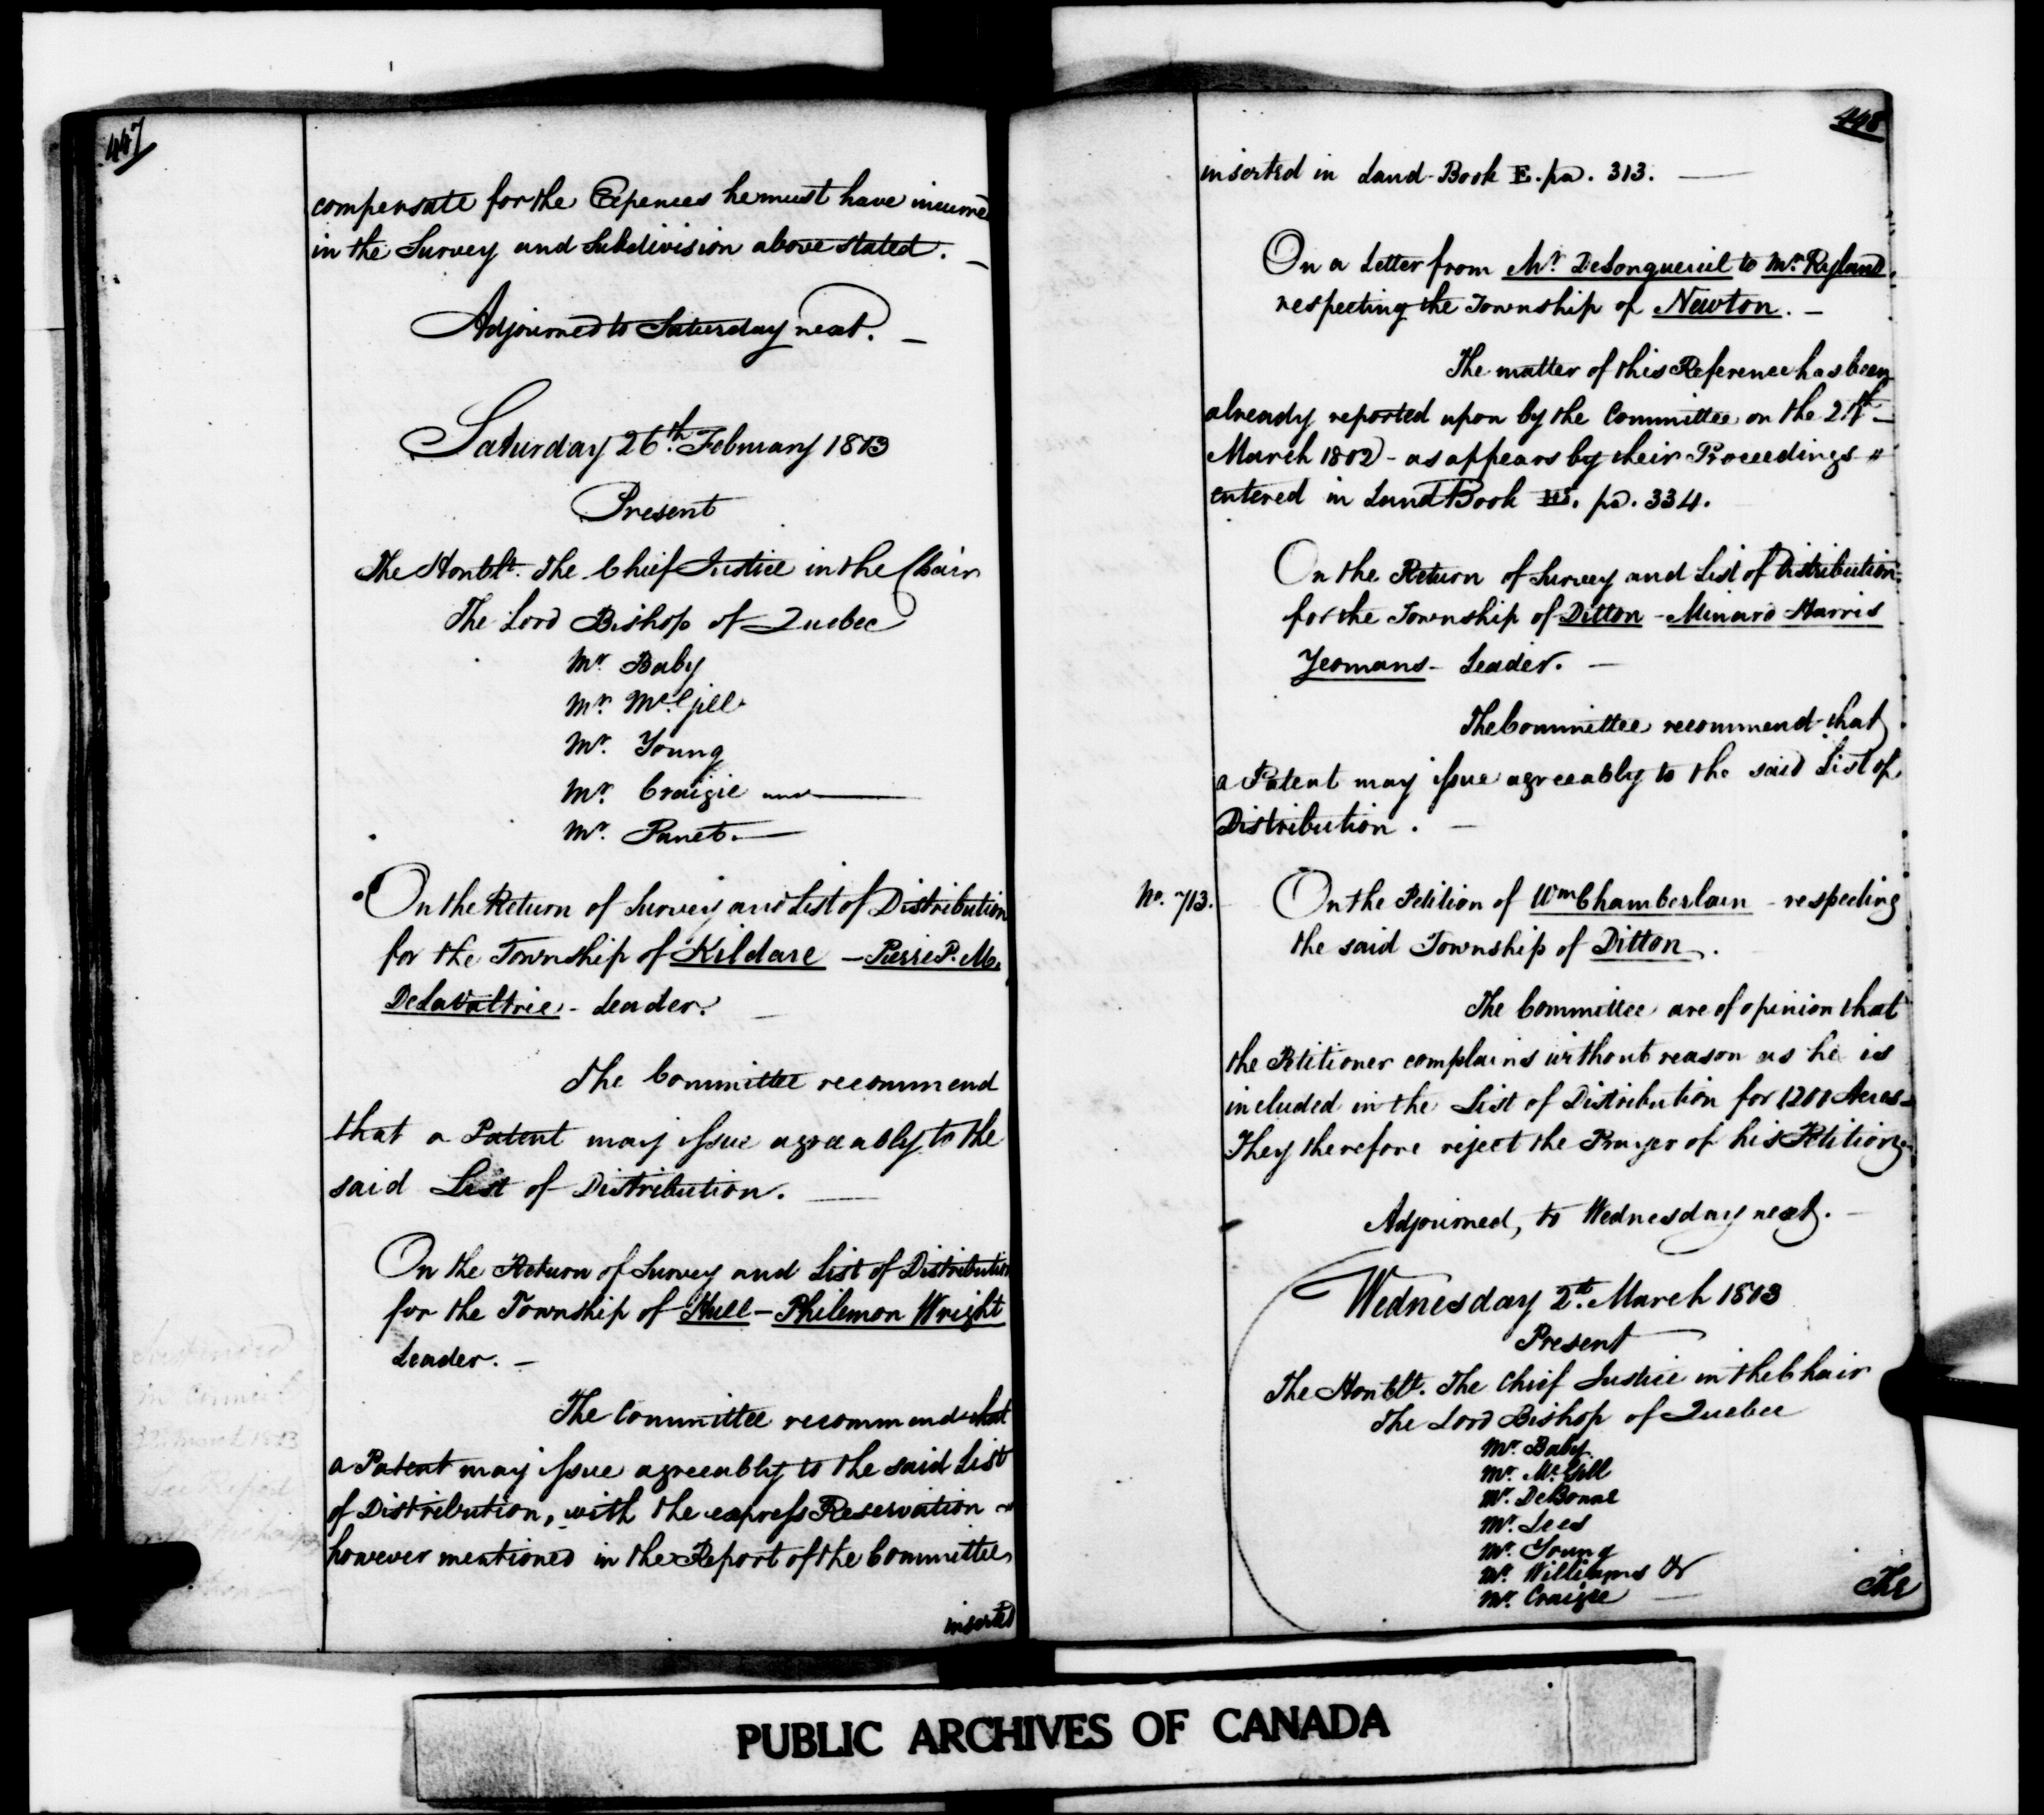 447
compensate for the Expences he must have incurred
in the Survey and Subdivision above stated. —
Adjourned to Saturday next. —
Saturday 26th. February 1803
Present
The Honble. The Chief Justice in the Chair
The Lord Bishop of Quebec
Mr. Baby
Mr. McGill
Mr. Young
Mr. Craigie and
Mr. Panet. —
On the Return of Survey and List of Distribution
for the Township of Kildare — Pierre P. M.
DeLaValtrie - Leader. —
The Committee recommend
that a Patent may issue agreeably to the
said List of Distribution. —
On the Return of Survey and List of Distribution
for the Township of Hull — Philemon Wright
Leader. —
The Committee recommend that
a Patent may issue agreeably to the said List
of Distribution, with the express Reservation
however mentioned in the Report of the Committee
inserted
448
inserted in Land Book E. pa. 313. —
On a Letter from Mr. DeLongueuil to Mr. Ryland
respecting the Township of Newton. —
The matter of this Reference has been
already reported upon by the Committee on the
March 1802 - as appears by their Proceedings "
entered in Land Book pa. 334.
On the Return of Survey and List of Distribution
for the Township of Ditton - Minard Harris
Yeomans - Leader. —
The Committee recommend that
a Patent may issue agreeably to the said List of
Distribution. —
No. 713.
On the Petition of Wm Chamberlain - respecting
the said Township of Ditton.
The Committee are of opinion that
the Petitioner complains without reason as he is
included in the List of Distribution for 1200 Acres —
They therefore reject the Prayer of his Petition.
Adjourned, to Wednesday next. —
Wednesday 2d. March 1803
Present
The Honble. The Chief Justice in the Chair
The Lord Bishop of Quebec
Mr. Baby
Mr. McGill
Mr. DeBonne
Mr. Lees
Mr. Young
Mr. Williams &
Mr. Craigie —
The
PUBLIC ARCHIVES OF CANADA